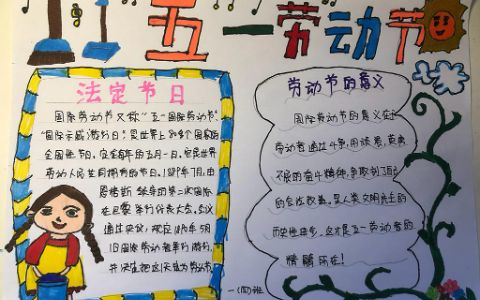 五一劳动节
法定节日
国际劳动节又称"五一国际劳动节"
"国际示威游行日"是世界上80多个国家的
全国性节日,定在每年的五月一日,它是世界
劳动人民共同拥有的节日,1889年7月,由
恩格斯 领导的第二次国际
在巴黎举行代表大会,会议
通过决议,规定1890年5月
1日国际劳动者举行游行,
并决定把这天定为劳动节
劳动节的意义
国际劳动节的意义在于
劳动者通过斗争,用顽强,英勇
不屈的奋斗精神,争取到了自己
的合法权益,是人类文明民主的
历史性进步,这才是五一劳动节的
精髓所在!
一(四)班